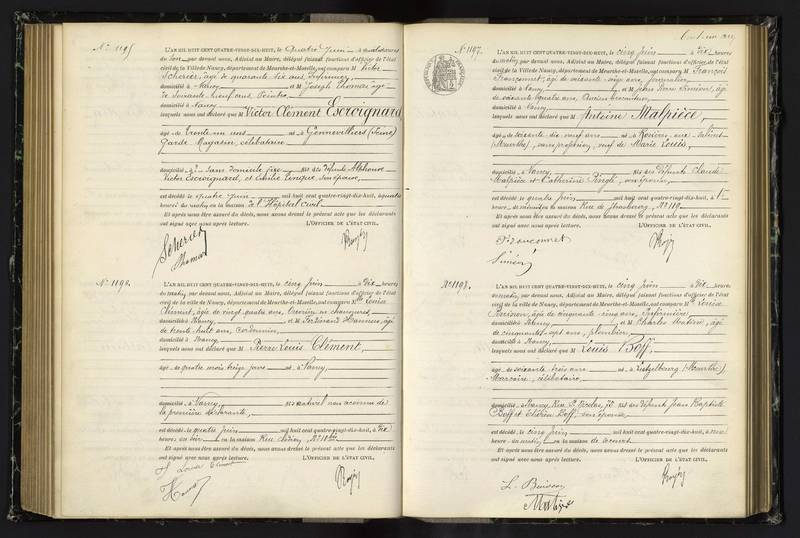 N° 1195
L'AN MIL HUIT CENT QUATRE-VINGT-DIX-HUIT, le quatre juin à quatre heures
du soir, par devant nous, Adjoint au Maire, délégué faisant fonctions d'officier de l'état
civil de la Ville de Nancy, département de Meurthe-et-Moselle, ont comparu M Victor
Scherer, âgé de quarante six ans, Infirmier,
domicilié à Nancy et M Joseph Thomas âgé
de soixante neuf ans, Peintre,
domicilié à Nancy
lesquels nous ont déclaré que M Victor Clément Escoignard
âgé de trente un ans né à Gennevilliers (Seine)
Garde Magasin, célibataire
domicilié à sans domicile fixe fils des défunts Alphonse
Victor Escoignard et Emilie sans épouse,
est décédé le quatre juin mil huit cent quatre-vingt-dix-huit, à quatre
heures du matin en la maison de l'Hôpital civil
Et après nous être assuré du décès, nous avons dressé le présent acte que les déclarants
ont signé avec nous après lecture. L'OFFICIER DE L'ÉTAT CIVIL,
Scherer
Thomas
N° 1196
L'AN MIL HUIT CENT QUATRE-VINGT-DIX-HUIT, le cinq juin à dix heures
du matin, par devant nous, Adjoint au Maire, délégué faisant fonctions d'officier de l'état
civil de la ville de Nancy, département de Meurthe-et-Moselle, ont comparu Mlle Louise
Clément, âgée de vingt quatre ans, Ouvrière en chaussures
domiciliée à Nancy, et M Ferdinand Hannus, âgé
de trente huit ans, cordonnier,
domicilié à Nancy
lesquels nous ont déclaré que M Pierre Louis Clément,
âgé de quatre mois treize jours né à Nancy,
domicilié à Nancy fils naturel non reconnu de
la première déclarante,
est décédé le quatre juin mil huit cent quatre-vingt-dix-huit, à dix
heures du soir en la maison Rue
Et après nous être assuré du décès, nous avons dressé le présent acte que les déclarants
ont signé avec nous après lecture. L'OFFICIER DE L'ÉTAT CIVIL,
Louise Clément
N° 1197
L'AN MIL HUIT CENT QUATRE-VINGT-DIX-HUIT, le cinq juin à dix heures
du matin, par devant nous, Adjoint au Maire, délégué faisant fonctions d'officier de l'état
civil de la Ville de Nancy, département de Meurthe-et-Moselle, ont comparu M François
âgé de soixante ans, journalier,
domicilié à Nancy et M Jean Pierre Siméon, âgé
de soixante quatre ans,
domicilié à Nancy
lesquels nous ont déclaré que M Antoine Malpièce,
âgé de soixante dix neuf ans né à Rosières aux Salines
(Meurthe), sans profession, veuf de Marie Louis,
domicilié à Nancy fils des défunts Claude
Malpièce et Catherine sans épouse
est décédé le quatre juin mil huit cent quatre-vingt-dix-huit, à
heures en la maison Rue de Strasbourg, N° 119
Et après nous être assuré du décès, nous avons dressé le présent acte que les déclarants
ont signé avec nous après lecture. L'OFFICIER DE L'ÉTAT CIVIL,
Siméon
N° 1198
L'AN MIL HUIT CENT QUATRE-VINGT-DIX-HUIT, le cinq juin à dix heures
du matin, par devant nous, Adjoint au Maire, délégué faisant fonctions d'officier de l'état
civil de la ville de Nancy, département de Meurthe-et-Moselle, ont comparu Mme Louise
Buisson, âgée de cinquante-cinq ans, Infirmière,
domiciliée à Nancy, et M Charles âgé
de cinquante-sept ans, plombier,
domicilié à Nancy
lesquels nous ont déclaré que M Louis Boff,
âgé de soixante trois ans né à Lutzelbourg (Meurthe),
Marcaire, célibataire,
domicilié à Nancy, Rue St Nicolas, fils des défunts Jean Baptiste
Boff et Thérèse Boff, sans épouse
est décédé le cinq juin mil huit cent quatre-vingt-dix-huit, à
heures du matin, en la maison de secours
Et après nous être assuré du décès, nous avons dressé le présent acte que les déclarants
ont signé avec nous après lecture. L'OFFICIER DE L'ÉTAT CIVIL,
L. Buisson